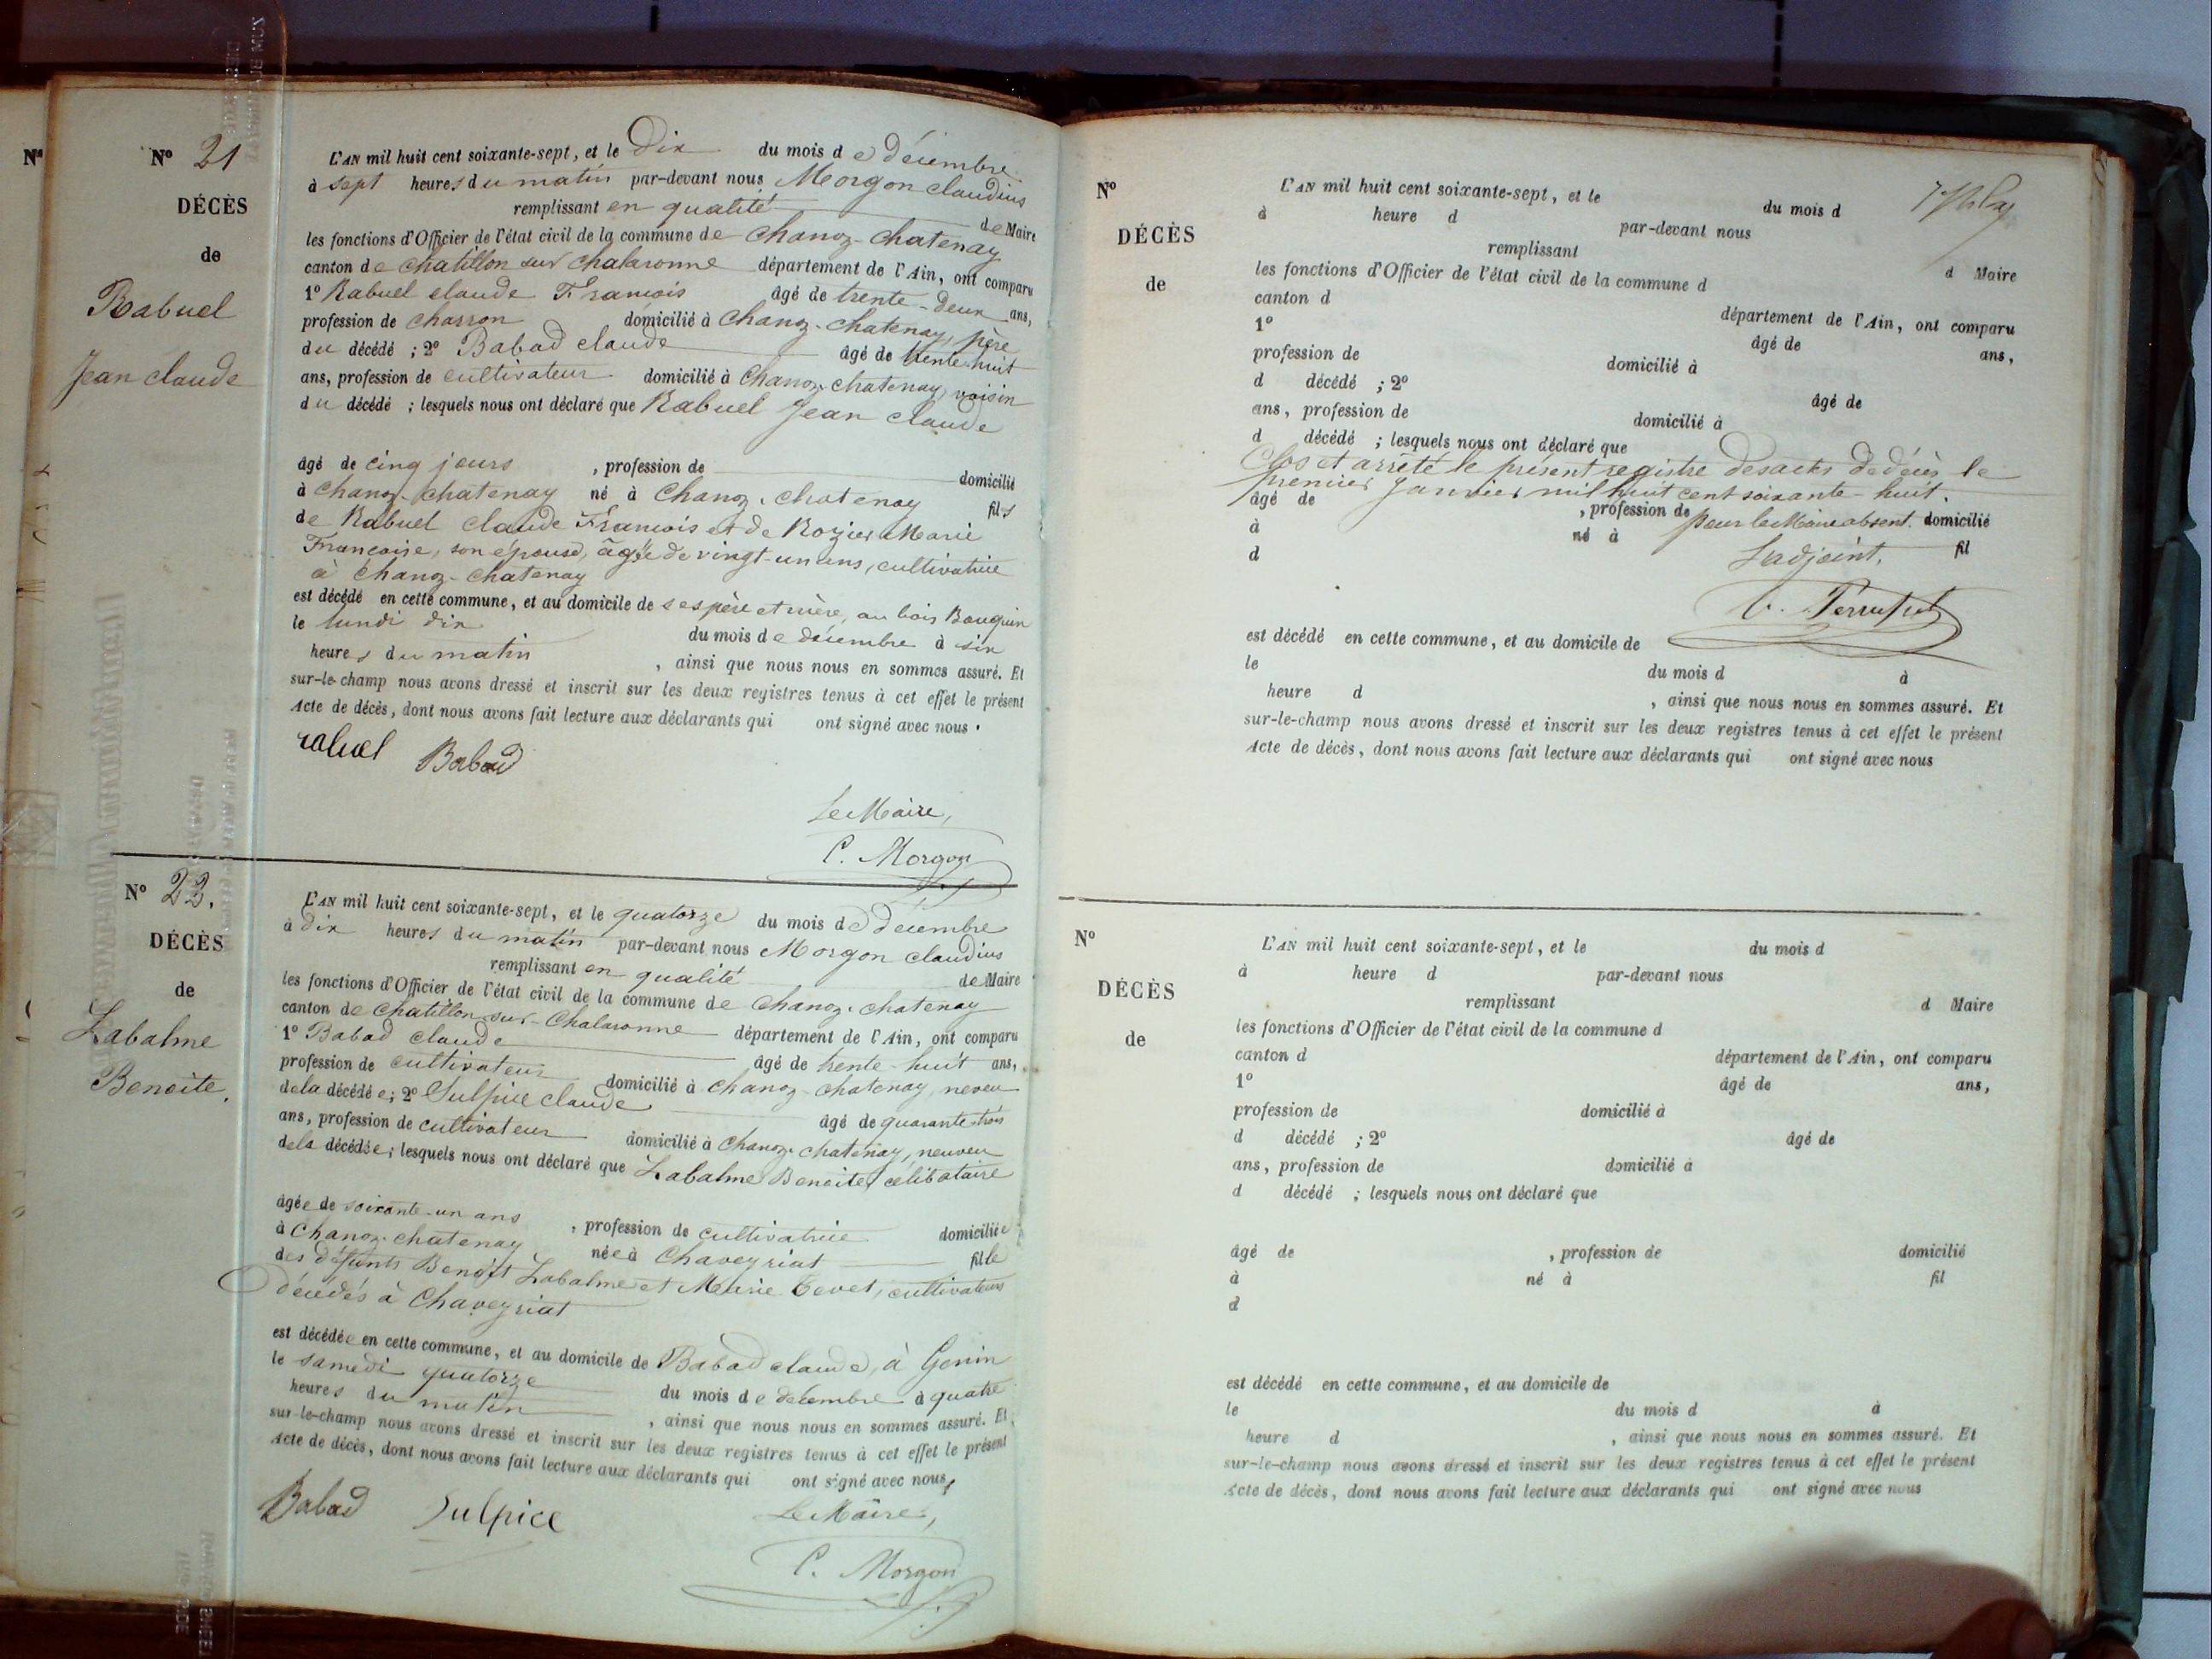 Nº
Nº 21
DÉCÈS
de
Rabuel
Jean Claude
L'AN mil huit cent soixante-sept, et le Dix du mois de décembre
à sept heures du matin par-devant nous Morgon Claudius
remplissant en qualité de Maire
les fonctions d'Officier de l'état civil de la commune de Chanoz-Chatenay
canton de Chatillon sur Chalaronne département de l'Ain, ont comparu
1º Rabuel Claude François âgé de trente-deux ans,
profession de charron domicilié à Chanoz-Chatenay, père
du décédé ; 2º Babad Claude âgé de trente-huit
ans, profession de cultivateur domicilié à Chanoz-Chatenay, voisin
du décédé ; lesquels nous ont déclaré que Rabuel Jean Claude
âgé de cinq jours , profession de domicilié
à Chanoz-Chatenay né à Chanoz-Chatenay fils
de Rabuel Claude François et de Rozier Marie
Françoise, son épouse, âgée de vingt-un ans, cultivatrice
à Chanoz-Chatenay
est décédé en cette commune, et au domicile de ses père et mère, au bois Bouquin
le lundi dix du mois de décembre à six
heures du matin , ainsi que nous nous en sommes assuré. Et
sur-le-champ nous avons dressé et inscrit sur les deux registres tenus à cet effet le présent
Acte de décès, dont nous avons fait lecture aux déclarants qui ont signé avec nous.
rabuel Babad
Le Maire,
C. Morgon
Nº 22.
DÉCÈS
de
Labalme
Benoite.
L'AN mil huit cent soixante-sept, et le quatorze du mois de Décembre
à dix heures du matin par-devant nous Morgon Claudius
remplissant en qualité de Maire
les fonctions d'Officier de l'état civil de la commune de Chanoz-Chatenay
canton de Chatillon-sur-Chalaronne département de l'Ain, ont comparu
1º Babad Claude âgé de trente-huit ans,
profession de cultivateur domicilié à Chanoz-Chatenay, neveu
de la décédée; 2º Sulpice Claude âgé de quarante-trois
ans, profession de cultivateur domicilié à Chanoz-Chatenay, neuveu
de la décédée; lesquels nous ont déclaré que Labalme Benoite, célibataire
âgée de soixante-un ans , profession de cultivatrice domiciliée
à Chanoz-Chatenay née à Chaveyriat fille
des défunts Benoît Labalme et Marie Tevet, cultivateurs
décédés à Chaveyriat
est décédée en cette commune, et au domicile de Babad Claude, à Genin
le samedi quatorze du mois de décembre à quatre
heures du matin , ainsi que nous nous en sommes assuré. Et
sur-le-champ nous avons dressé et inscrit sur les deux registres tenus à cet effet le présent
Acte de décès, dont nous avons fait lecture aux déclarants qui ont signé avec nous,
Babad Sulpice
Le Maire,
C. Morgon
Nº
DÉCÈS
de
L'AN mil huit cent soixante-sept, et le du mois d
à heure d par-devant nous
remplissant d Maire
les fonctions d'Officier de l'état civil de la commune d
canton d département de l'Ain, ont comparu
1º âgé de ans,
profession de domicilié à
d décédé ; 2º âgé de
ans, profession de domicilié à
d décédé ; lesquels nous ont déclaré que
Clos et arrêté le présent registre des actes de décès le
premier Janvier mil huit cent soixante-huit.
âgé de , profession de domicilié
pour le Maire absent.
à né à fil
d
L'adjoint,
est décédé en cette commune, et au domicile de
le du mois d à
heure d , ainsi que nous nous en sommes assuré. Et
sur-le-champ nous avons dressé et inscrit sur les deux registres tenus à cet effet le présent
Acte de décès, dont nous avons fait lecture aux déclarants qui ont signé avec nous
Nº
DÉCÈS
de
L'AN mil huit cent soixante-sept, et le du mois d
à heure d par-devant nous
remplissant d Maire
les fonctions d'Officier de l'état civil de la commune d
canton d département de l'Ain, ont comparu
1º âgé de ans,
profession de domicilié à
d décédé ; 2º âgé de
ans, profession de domicilié à
d décédé ; lesquels nous ont déclaré que
âgé de , profession de domicilié
à né à fil
d
est décédé en cette commune, et au domicile de
le du mois d à
heure d , ainsi que nous nous en sommes assuré. Et
sur-le-champ nous avons dressé et inscrit sur les deux registres tenus à cet effet le présent
Acte de décès, dont nous avons fait lecture aux déclarants qui ont signé avec nous